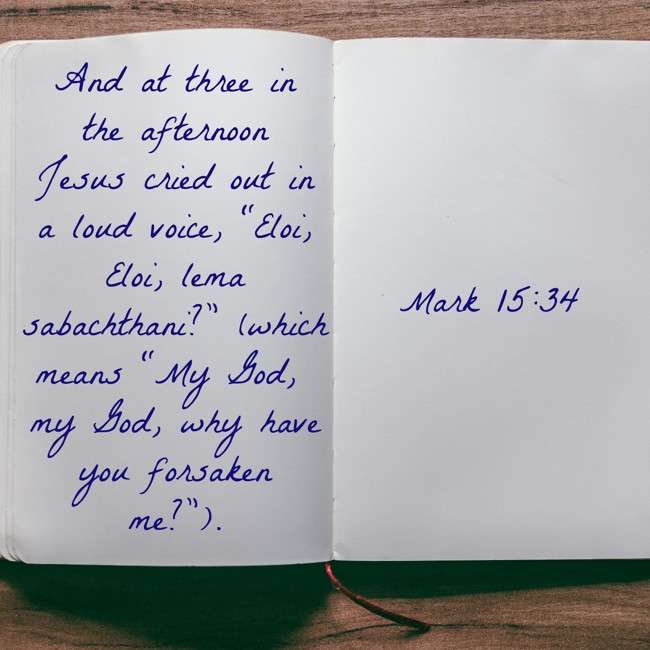 And at three in
the afternoon
Jesus cried out in
a loud voice, “Eloi,
Eloi, lema
sabachthani?” (which
means “My God,
my God, why have
you forsaken
me?”).
Mark 15:34